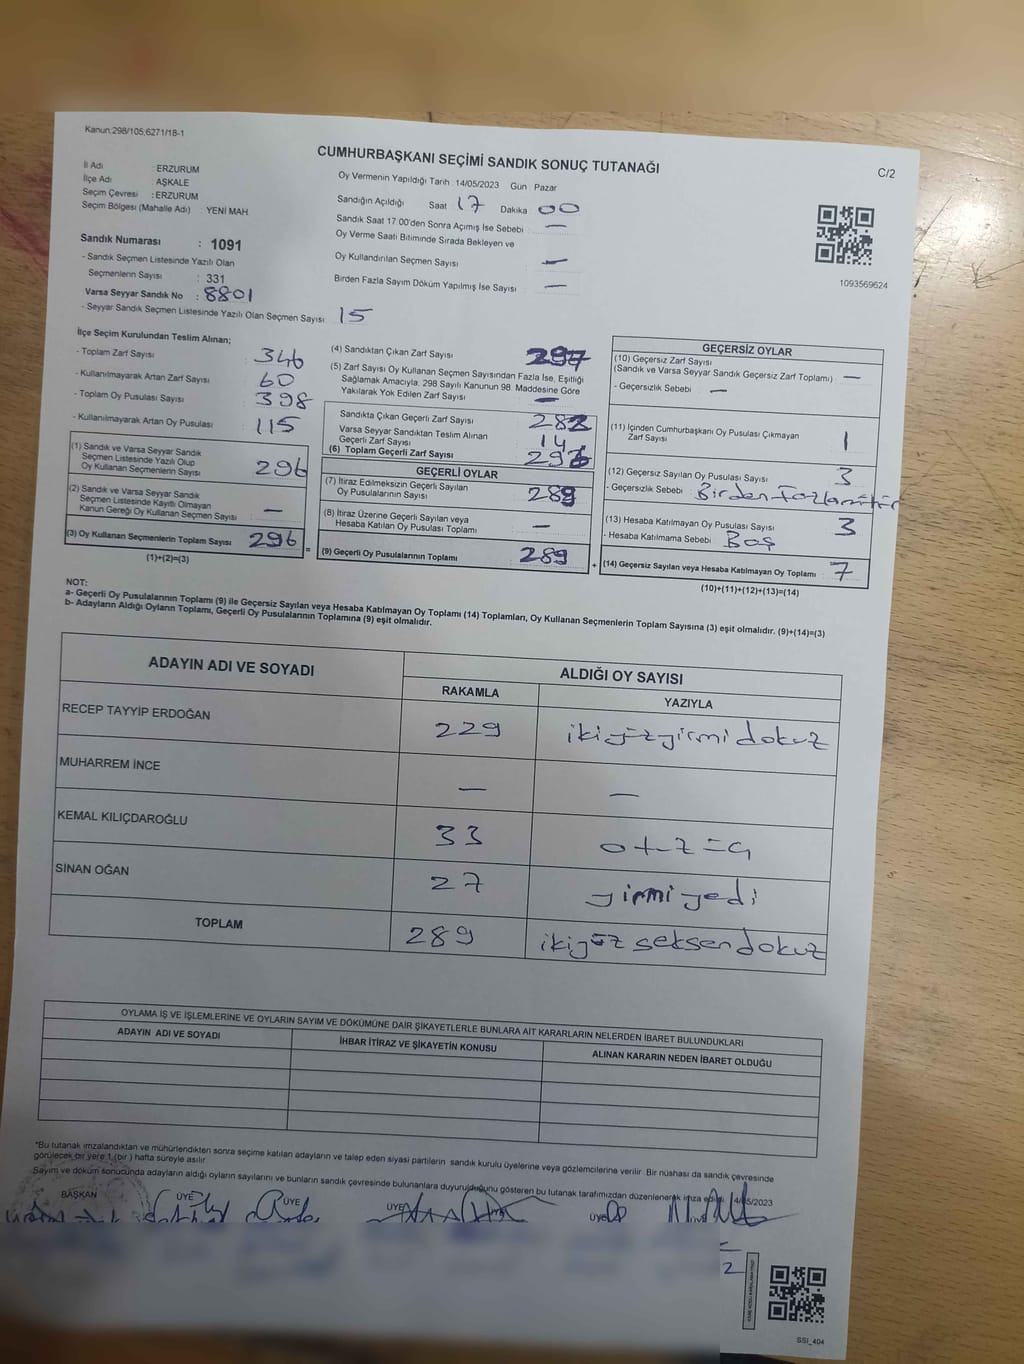 Kanun:298/105;6271/18-1
CUMHURBAŞKANI SEÇİMİ SANDIK SONUÇ TUTANAĞI
C/2
İl Adı : ERZURUM
İlçe Adı : AŞKALE
Seçim Çevresi : ERZURUM
Seçim Bölgesi (Mahalle Adı) : YENİ MAH
Sandık Numarası : 1091
- Sandık Seçmen Listesinde Yazılı Olan
Seçmenlerin Sayısı : 331
Varsa Seyyar Sandık No : 8801
- Seyyar Sandık Seçmen Listesinde Yazılı Olan Seçmen Sayısı 15
Oy Vermenin Yapıldığı Tarih :14/05/2023 Gün Pazar
Sandığın Açıldığı Saat 17 Dakika 00
Sandık Saat 17.00'den Sonra Açımış İse Sebebi : —
Oy Verme Saati Bitiminde Sırada Bekleyen ve
Oy Kullandırılan Seçmen Sayısı —
Birden Fazla Sayım Döküm Yapılmış İse Sayısı —
1093569624
İlçe Seçim Kurulundan Teslim Alınan;
- Toplam Zarf Sayısı : 346
- Kullanılmayarak Artan Zarf Sayısı : 60
- Toplam Oy Pusulası Sayısı : 398
- Kullanılmayarak Artan Oy Pusulası : 115
(1) Sandık ve Varsa Seyyar Sandık
Seçmen Listesinde Yazılı Olup
Oy Kullanan Seçmenlerin Sayısı : 296
(2) Sandık ve Varsa Seyyar Sandık
Seçmen Listesinde Kayıtlı Olmayan
Kanun Gereği Oy Kullanan Seçmen Sayısı : —
(3) Oy Kullanan Seçmenlerin Toplam Sayısı : 296
(1)+(2)=(3)
(4) Sandıktan Çıkan Zarf Sayısı : 297
(5) Zarf Sayısı Oy Kullanan Seçmen Sayısından Fazla İse, Eşitliği
Sağlamak Amacıyla, 298 Sayılı Kanunun 98. Maddesine Göre
Yakılarak Yok Edilen Zarf Sayısı : —
Sandıkta Çıkan Geçerli Zarf Sayısı : 282
Varsa Seyyar Sandıktan Teslim Alınan
Geçerli Zarf Sayısı : 14
(6) Toplam Geçerli Zarf Sayısı : 296
GEÇERLİ OYLAR
(7) İtiraz Edilmeksizin Geçerli Sayılan
Oy Pusulalarının Sayısı : 289
(8) İtiraz Üzerine Geçerli Sayılan veya
Hesaba Katılan Oy Pusulası Toplamı : —
= (9) Geçerli Oy Pusulalarının Toplamı : 289
GEÇERSİZ OYLAR
(10) Geçersiz Zarf Sayısı
(Sandık ve Varsa Seyyar Sandık Geçersiz Zarf Toplamı) : —
- Geçersizlik Sebebi : —
(11) İçinden Cumhurbaşkanı Oy Pusulası Çıkmayan
Zarf Sayısı : 1
(12) Geçersiz Sayılan Oy Pusulası Sayısı : 3
- Geçersizlik Sebebi : Birden Fazla
(13) Hesaba Katılmayan Oy Pusulası Sayısı : 3
- Hesaba Katılmama Sebebi : Boş
+ (14) Geçersiz Sayılan veya Hesaba Katılmayan Oy Toplamı : 7
(10)+(11)+(12)+(13)=(14)
NOT:
a- Geçerli Oy Pusulalarının Toplamı (9) ile Geçersiz Sayılan veya Hesaba Katılmayan Oy Toplamı (14) Toplamları, Oy Kullanan Seçmenlerin Toplam Sayısına (3) eşit olmalıdır. (9)+(14)=(3)
b- Adayların Aldığı Oyların Toplamı, Geçerli Oy Pusulalarının Toplamına (9) eşit olmalıdır.
ADAYIN ADI VE SOYADI ALDIĞI OY SAYISI
RAKAMLA YAZIYLA
RECEP TAYYİP ERDOĞAN 229 ikiyüzyirmidokuz
MUHARREM İNCE — —
KEMAL KILIÇDAROĞLU 33 otuzüç
SİNAN OĞAN 27 yirmiyedi
TOPLAM 289 ikiyüzseksendokuz
OYLAMA İŞ VE İŞLEMLERİNE VE OYLARIN SAYIM VE DÖKÜMÜNE DAİR ŞİKAYETLERLE BUNLARA AİT KARARLARIN NELERDEN İBARET BULUNDUKLARI
ADAYIN ADI VE SOYADI İHBAR İTİRAZ VE ŞİKAYETİN KONUSU ALINAN KARARIN NEDEN İBARET OLDUĞU
*Bu tutanak imzalandıktan ve mühürlendikten sonra seçime katılan adayların ve talep eden siyasi partilerin sandık kurulu üyelerine veya gözlemcilerine verilir. Bir nüshası da sandık çevresinde
görülecek bir yere 1 (bir) hafta süreyle asılır.
Sayım ve döküm sonucunda adayların aldığı oyların sayılarını ve bunların sandık çevresinde bulunanlara duyurulduğunu gösteren bu tutanak tarafımızdan düzenlenerek imza edildi. 14/05/2023
BAŞKAN ÜYE ÜYE ÜYE ÜYE
2
SSİ_404